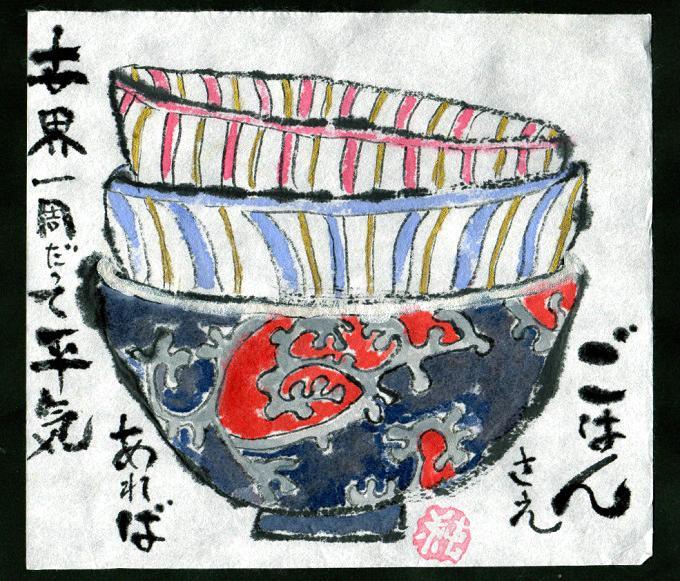 ごはん
さえ
あれば
世界一周だって平気
純